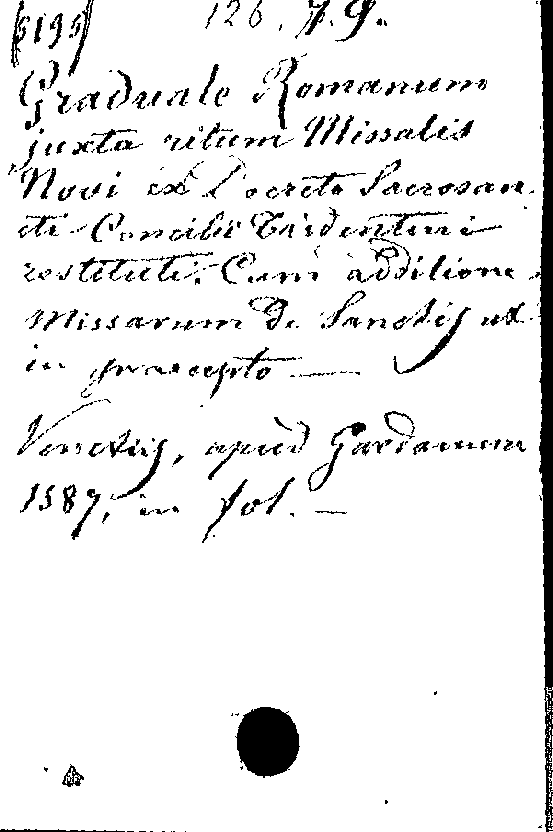 (5195) 126. J. G.
Graduale Romanum
juxta ritum Missalis
Novi ex Decreto Sacrosan
cti Concilii Tridentini
restituti. Cum additione
Missarum de Sanctis ut
in praecepto —
Venetiis, apud Gardanum
1587, in fol. —